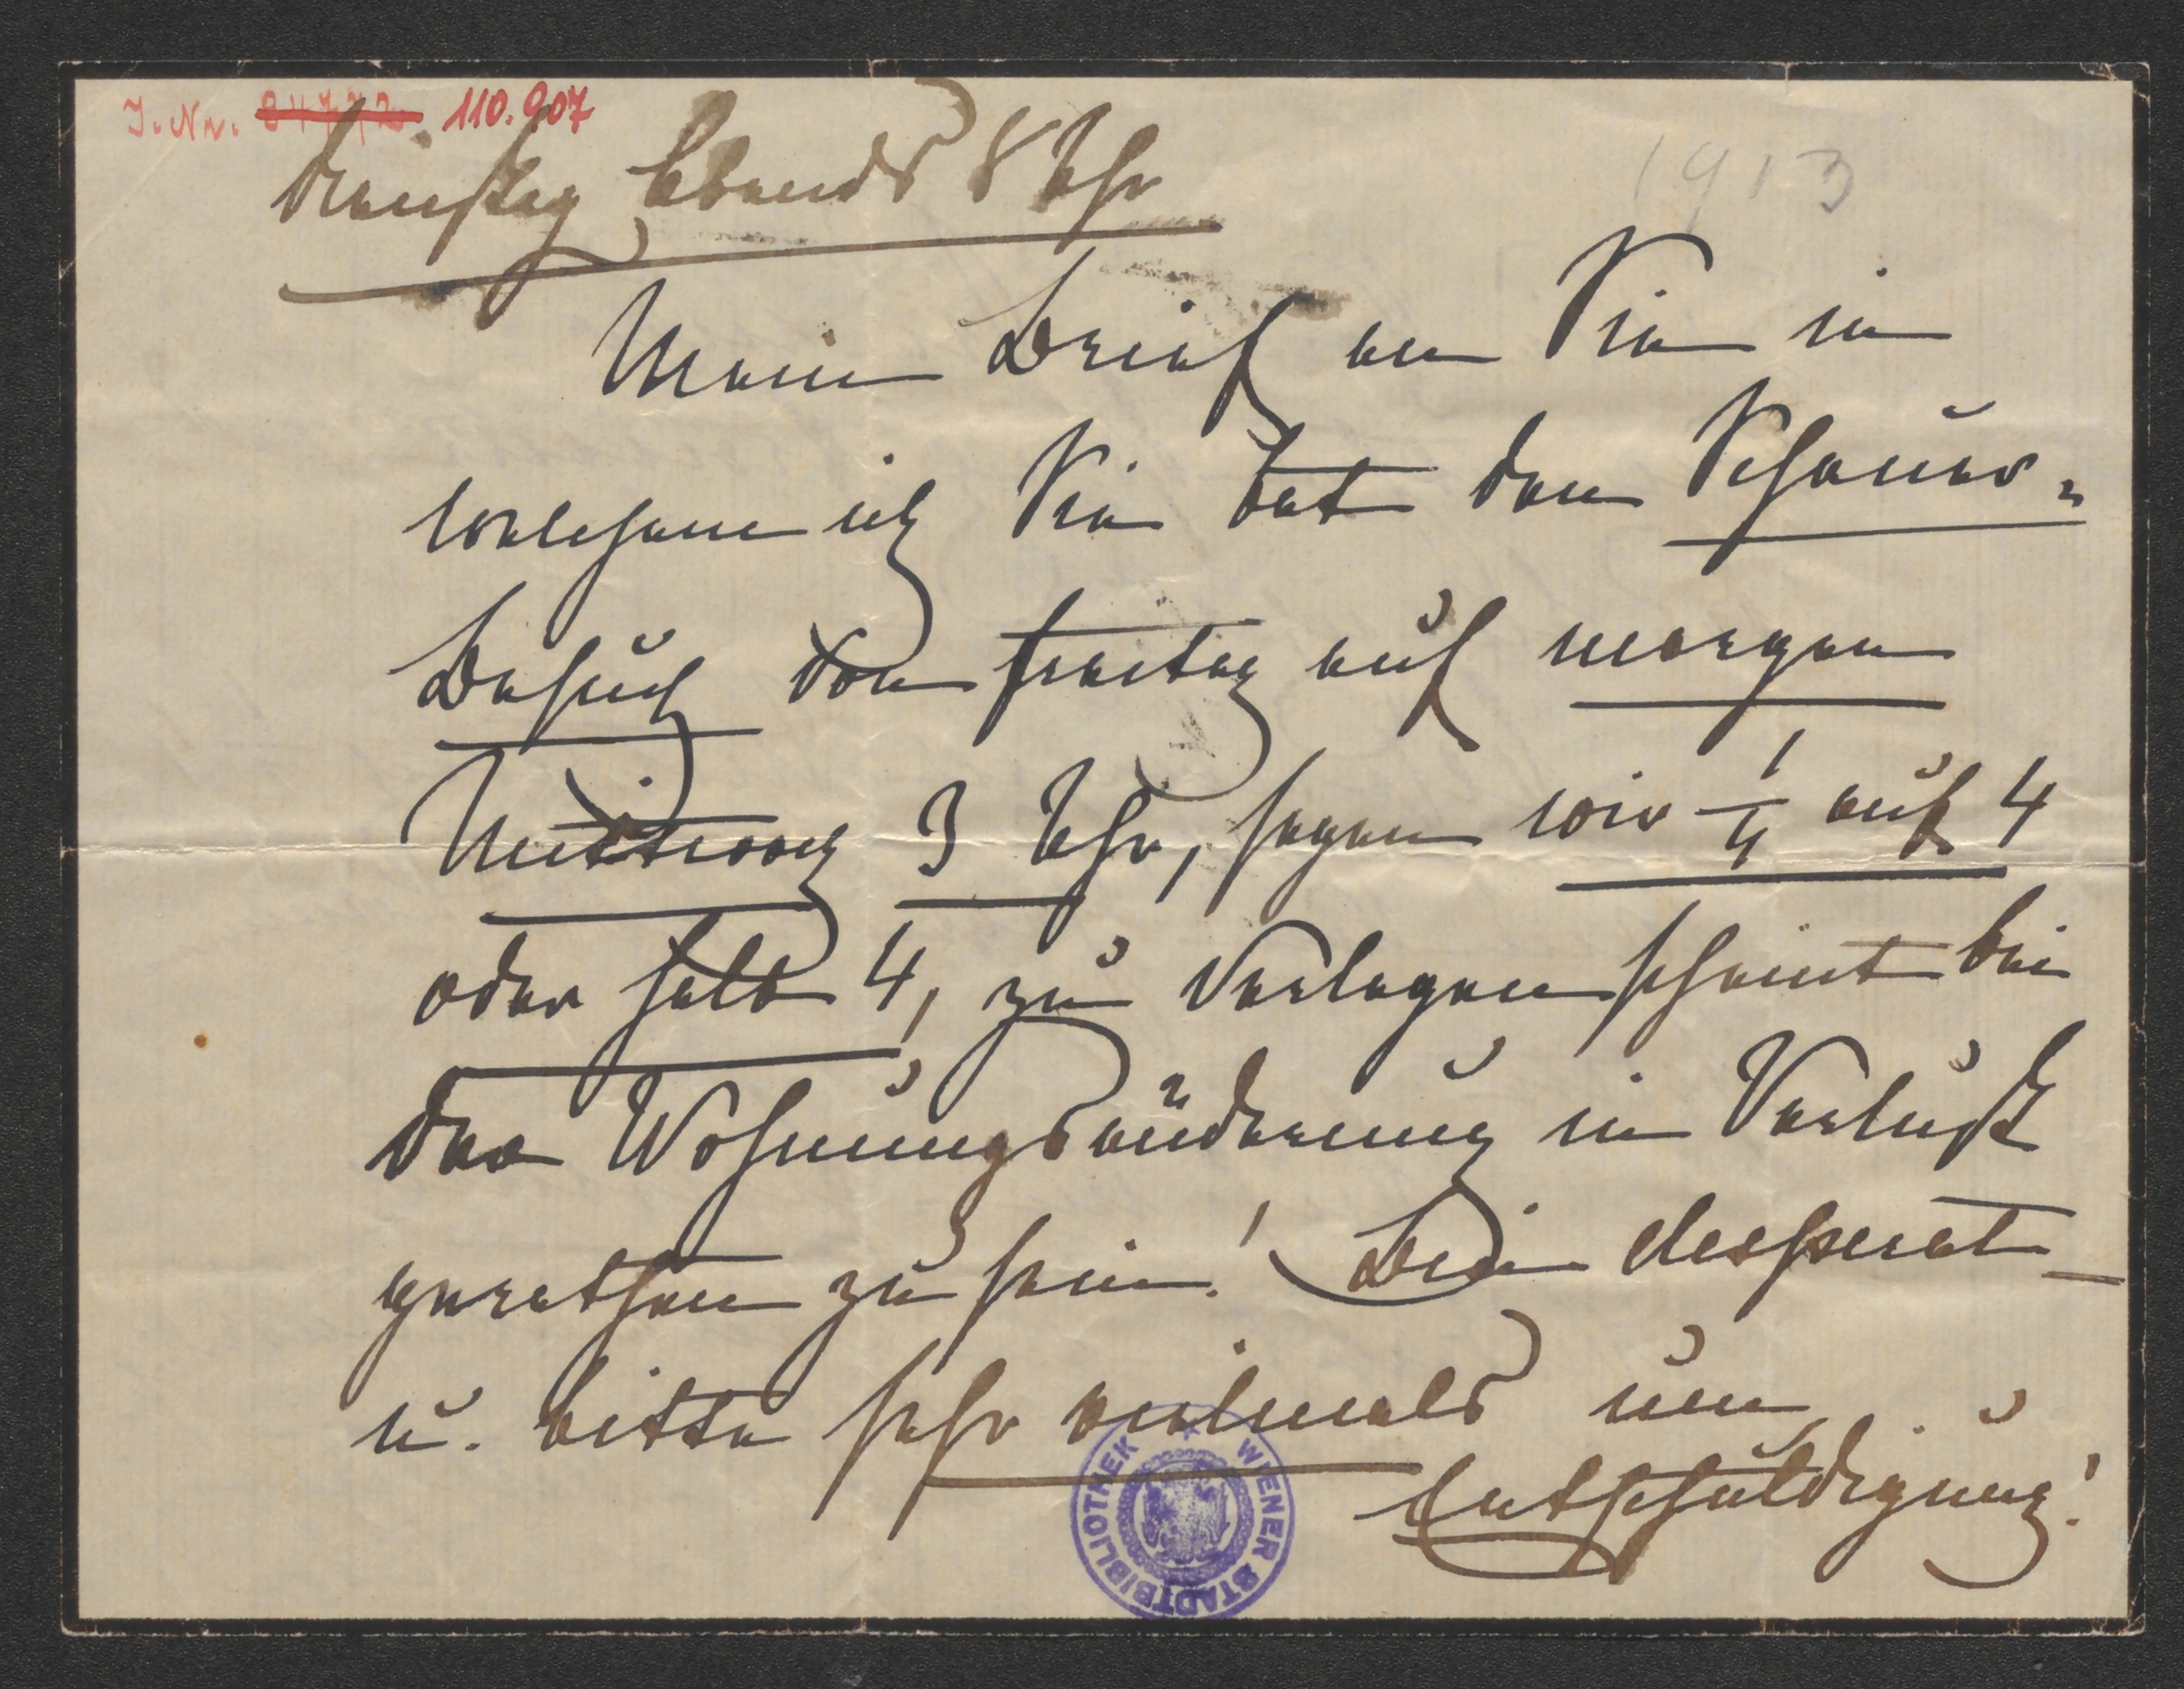 I. Nr. 110.907
1913
Dienstag Abends 8 Uhr
Mein Brief an Sie in
welchem ich Sie bat den Schauer-
Besuch von Freitag auf morgen
Mittwoch 3 Uhr, sagen wir 1/4 auf 4
oder halb 4, zu verlegen scheint bei
der Wohnungsänderung in Verlust
gerathen zu sein! Bin desperat
u. bitte sehr vielmals um
Entschuldigung!
WIENER STADTBIBLIOTHEK